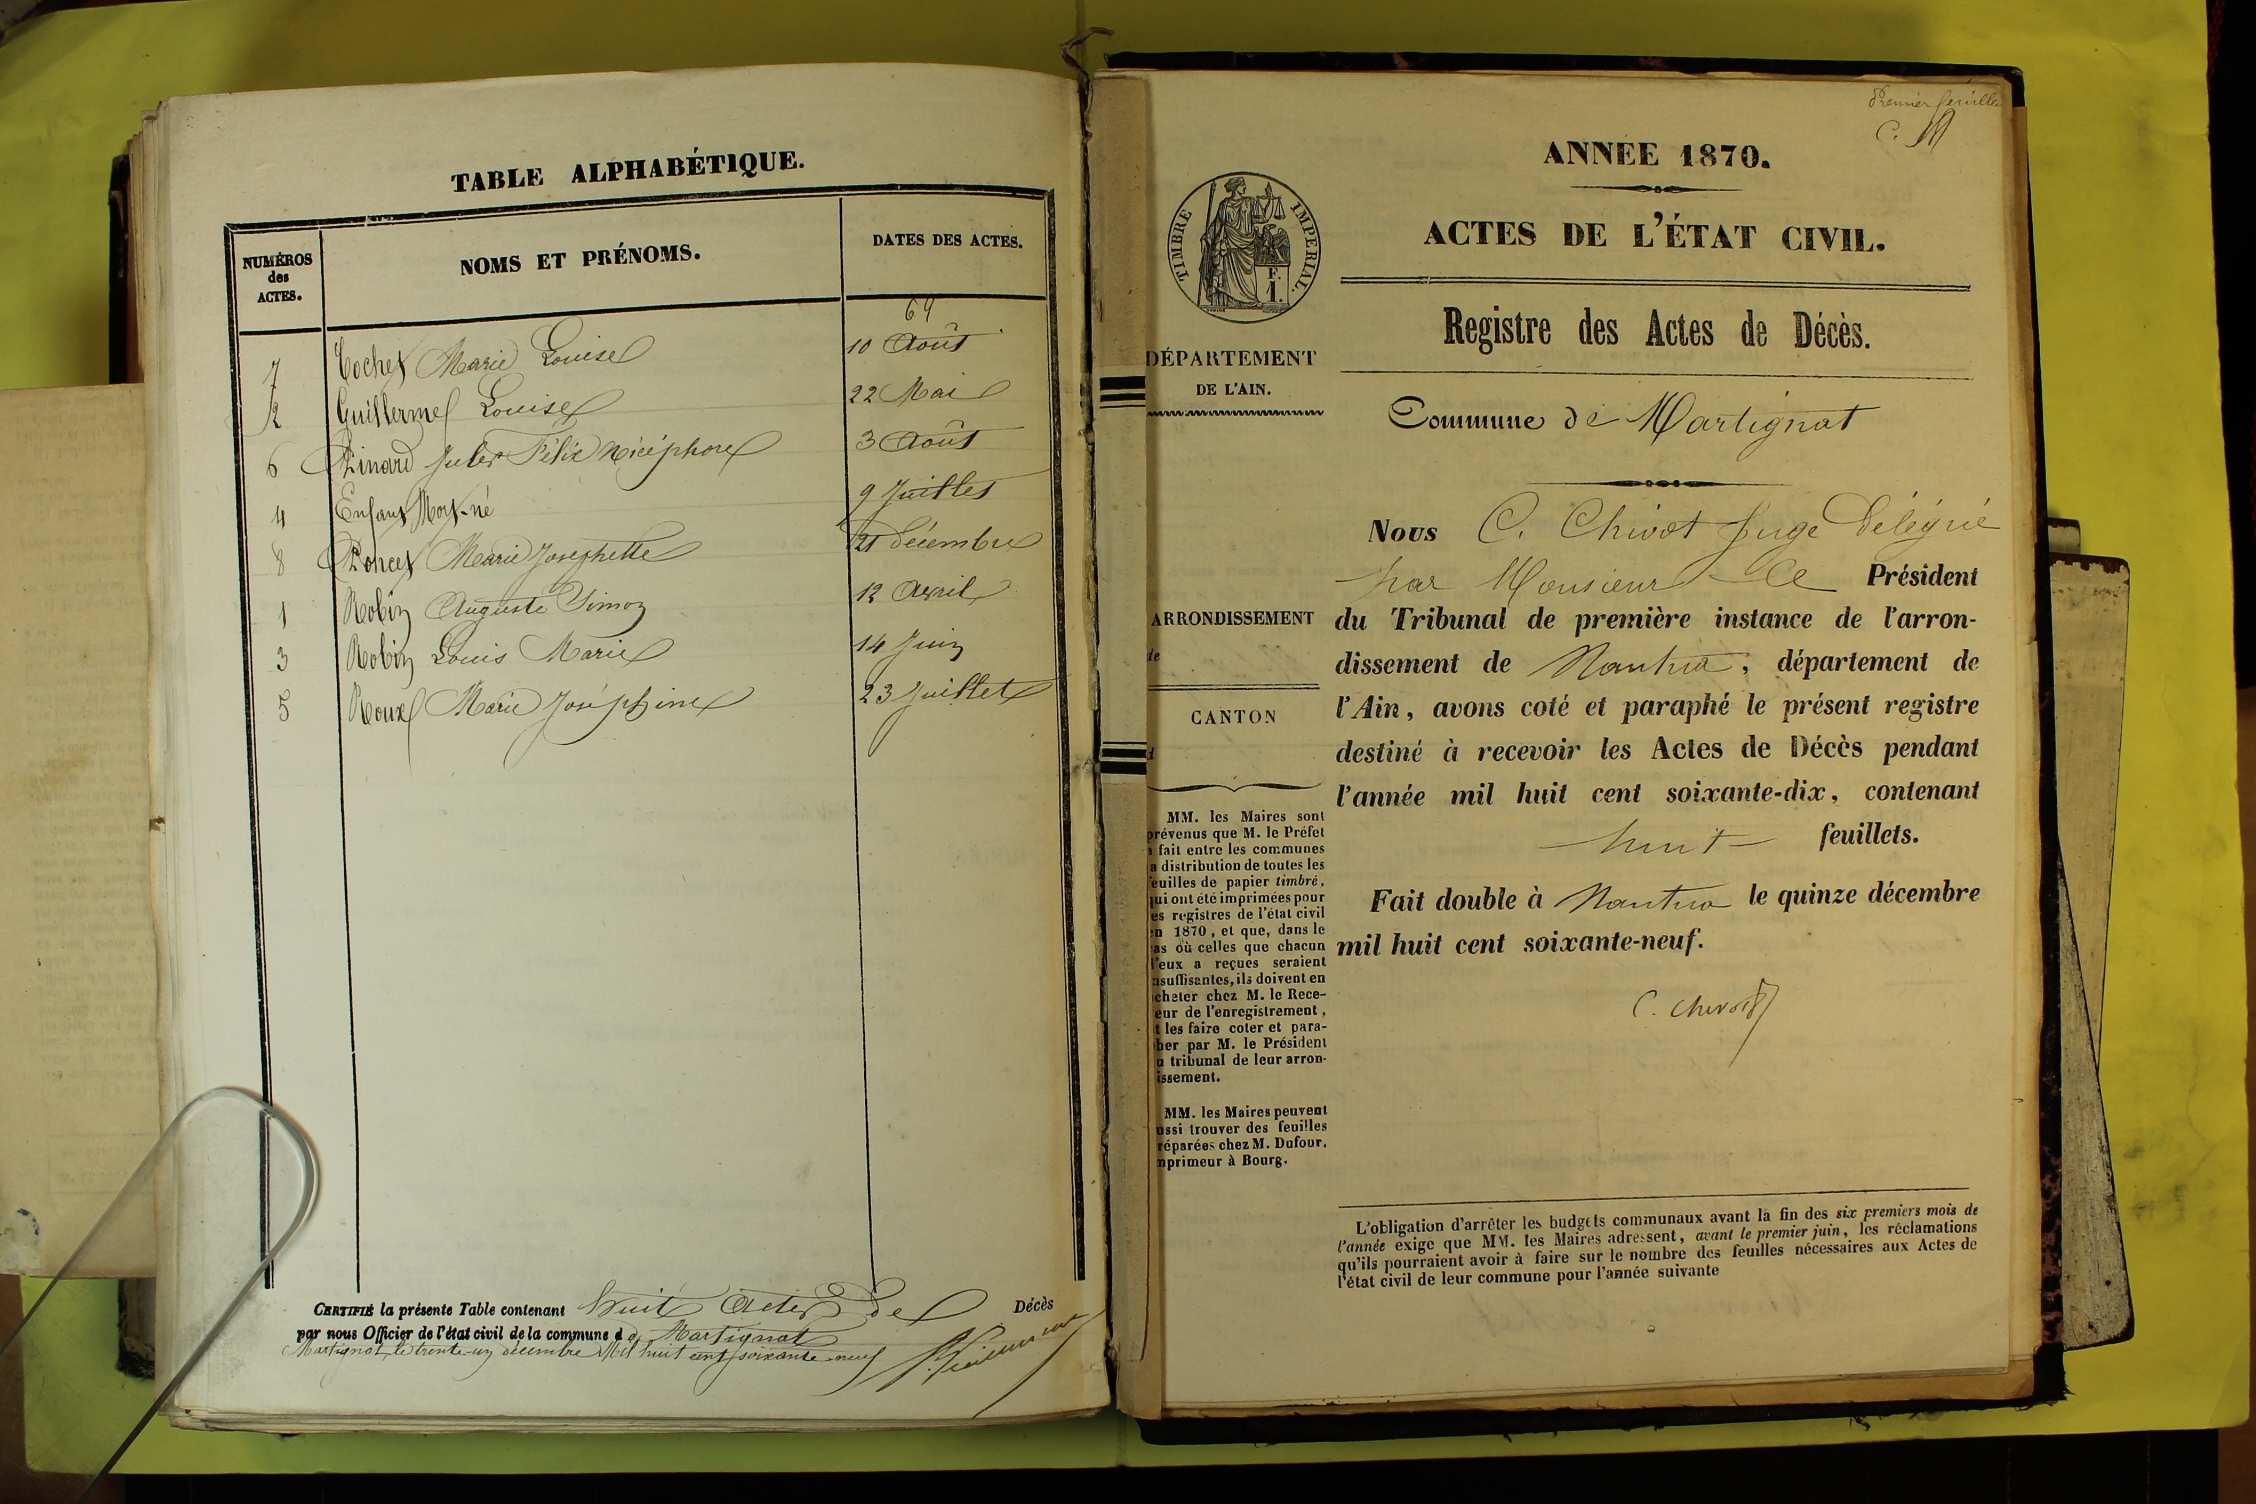 TABLE ALPHABÉTIQUE.
NUMÉROS des ACTES.
NOMS ET PRÉNOMS.
DATES DES ACTES.
69
7 Cochet Marie Louise 10 Août
2 Guillerme Louise 22 Mai
6 Pinard Jules Félix Nicéphore 3 Août
4 Enfant Mort-né 9 Juillet
8 Poncet Marie Josephette 21 décembre
1 Robin Auguste Simon 12 Avril
3 Robin Louis Marie 14 Juin
5 Roux Marie Joséphine 23 Juillet
CERTIFIÉ la présente Table contenant huit Actes de Décès
par nous Officier de l'état civil de la commune de Martignat
Martignat, le trente-un décembre Mil huit cent soixante neuf
Premier feuillet
C.
ANNÉE 1870.
ACTES DE L'ÉTAT CIVIL.
TIMBRE IMPERIAL.
F.
1.
Registre des Actes de Décès.
DÉPARTEMENT
DE L'AIN.
Commune de Martignat
Nous C. Chivot Juge Délégué
par Monsieur Le Président
ARRONDISSEMENT
de
du Tribunal de première instance de l'arron-
dissement de Nantua, département de
CANTON
d
l'Ain, avons coté et paraphé le présent registre
destiné à recevoir les Actes de Décès pendant
l'année mil huit cent soixante-dix, contenant
huit feuillets.
Fait double à Nantua le quinze décembre
mil huit cent soixante-neuf.
C. Chivot
MM. les Maires sont
prévenus que M. le Préfet
a fait entre les communes
a distribution de toutes les
euilles de papier timbré,
qui ont été imprimées pour
es registres de l'état civil
en 1870, et que, dans le
as où celles que chacun
d'eux a reçues seraient
nsuffisantes, ils doivent en
cheter chez M. le Rece-
eur de l'enregistrement,
t les faire coter et para-
her par M. le Président
u tribunal de leur arron-
issement.
MM. les Maires peuvent
ussi trouver des feuilles
réparées chez M. Dufour,
mprimeur à Bourg.
L'obligation d'arrêter les budgets communaux avant la fin des six premiers mois de
l'année exige que MM. les Maires adressent, avant le premier juin, les réclamations
qu'ils pourraient avoir à faire sur le nombre des feuilles nécessaires aux Actes de
l'état civil de leur commune pour l'année suivante